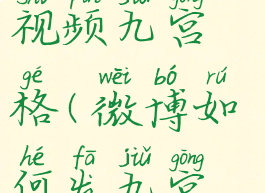 shì pín jiǔ gōng
视频九宫
gé wēi bó rú
格(微博如
hé fā jiǔ gōng
何发九宫